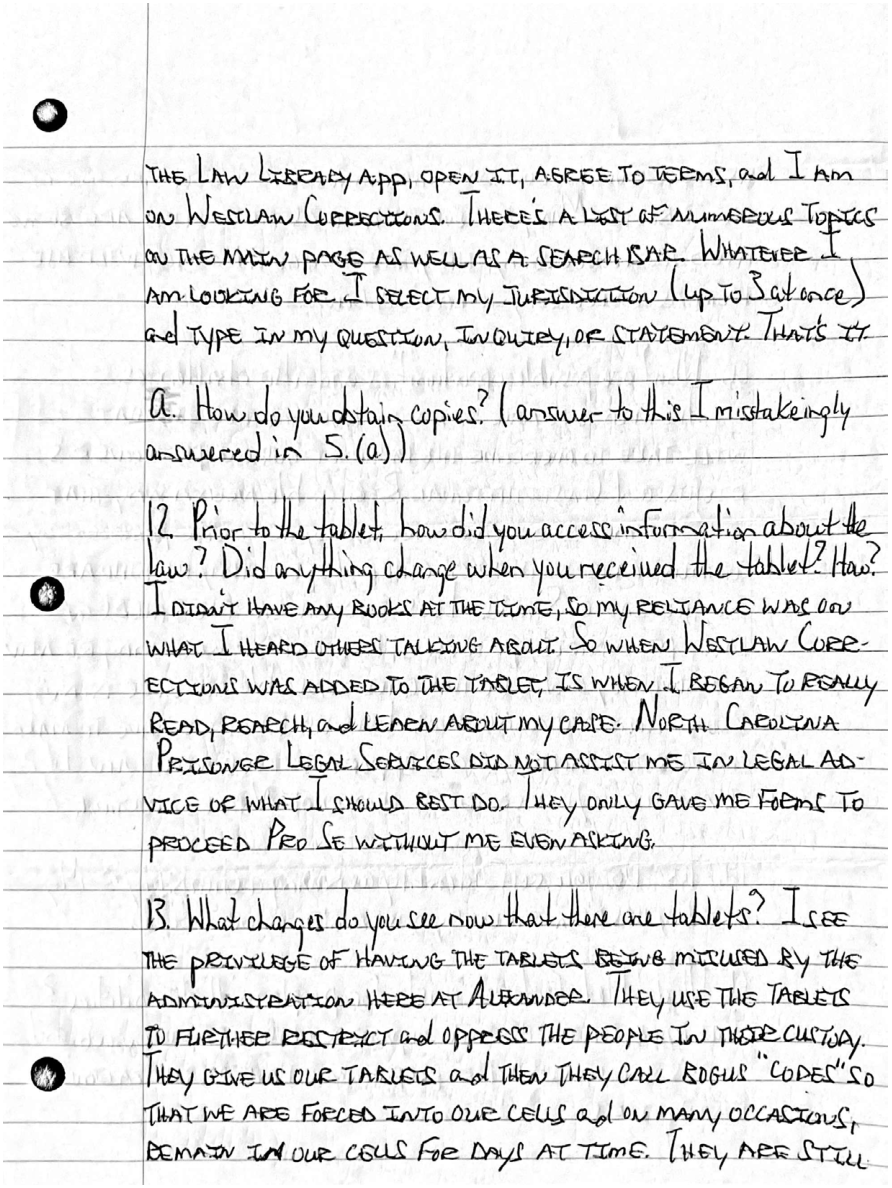 THE LAW LIBRARY APP, OPEN IT, AGREE TO TERMS, and I AM
ON WESTLAW CORRECTIONS. THERE'S A LIST OF NUMEROUS TOPICS
ON THE MAIN PAGE AS WELL AS A SEARCH BAR. WHATEVER I
AM LOOKING FOR I SELECT MY JURISDICTION (up TO 3 at once)
and TYPE IN MY QUESTION, INQUIRY, OR STATEMENT. THAT'S IT.
a. How do you obtain copies? (answer to this I mistakeingly
answered in 5.(a))
12. Prior to the tablet, how did you access information about the
law? Did anything change when you received the tablet? How?
I DIDN'T HAVE ANY BOOKS AT THE TIME, SO MY RELIANCE WAS ON
WHAT I HEARD OTHERS TALKING ABOUT. SO WHEN WESTLAW CORR-
ECTIONS WAS ADDED TO THE TABLET, IS WHEN I BEGAN TO REALLY
READ, REARCH, and LEARN ABOUT MY CASE. NORTH CAROLINA
PRISONER LEGAL SERVICES DID NOT ASSIST ME IN LEGAL AD-
VICE OF WHAT I SHOULD BEST DO. THEY ONLY GAVE ME FORMS TO
PROCEED PRO SE WITHOUT ME EVEN ASKING.
13. What changes do you see now that there are tablets? I SEE
THE PRIVILEGE OF HAVING THE TABLETS BEING MISUSED BY THE
ADMINISTRATION HERE AT ALEXANDER. THEY USE THE TABLETS
TO FURTHER RESTRICT and OPPRESS THE PEOPLE IN THEIR CUSTODY.
THEY GIVE US OUR TABLETS and THEN THEY CALL BOGUS "CODES" SO
THAT WE ARE FORCED INTO OUR CELLS and ON MANY OCCASIONS,
REMAIN IN OUR CELLS FOR DAYS AT TIME. THEY ARE STILL